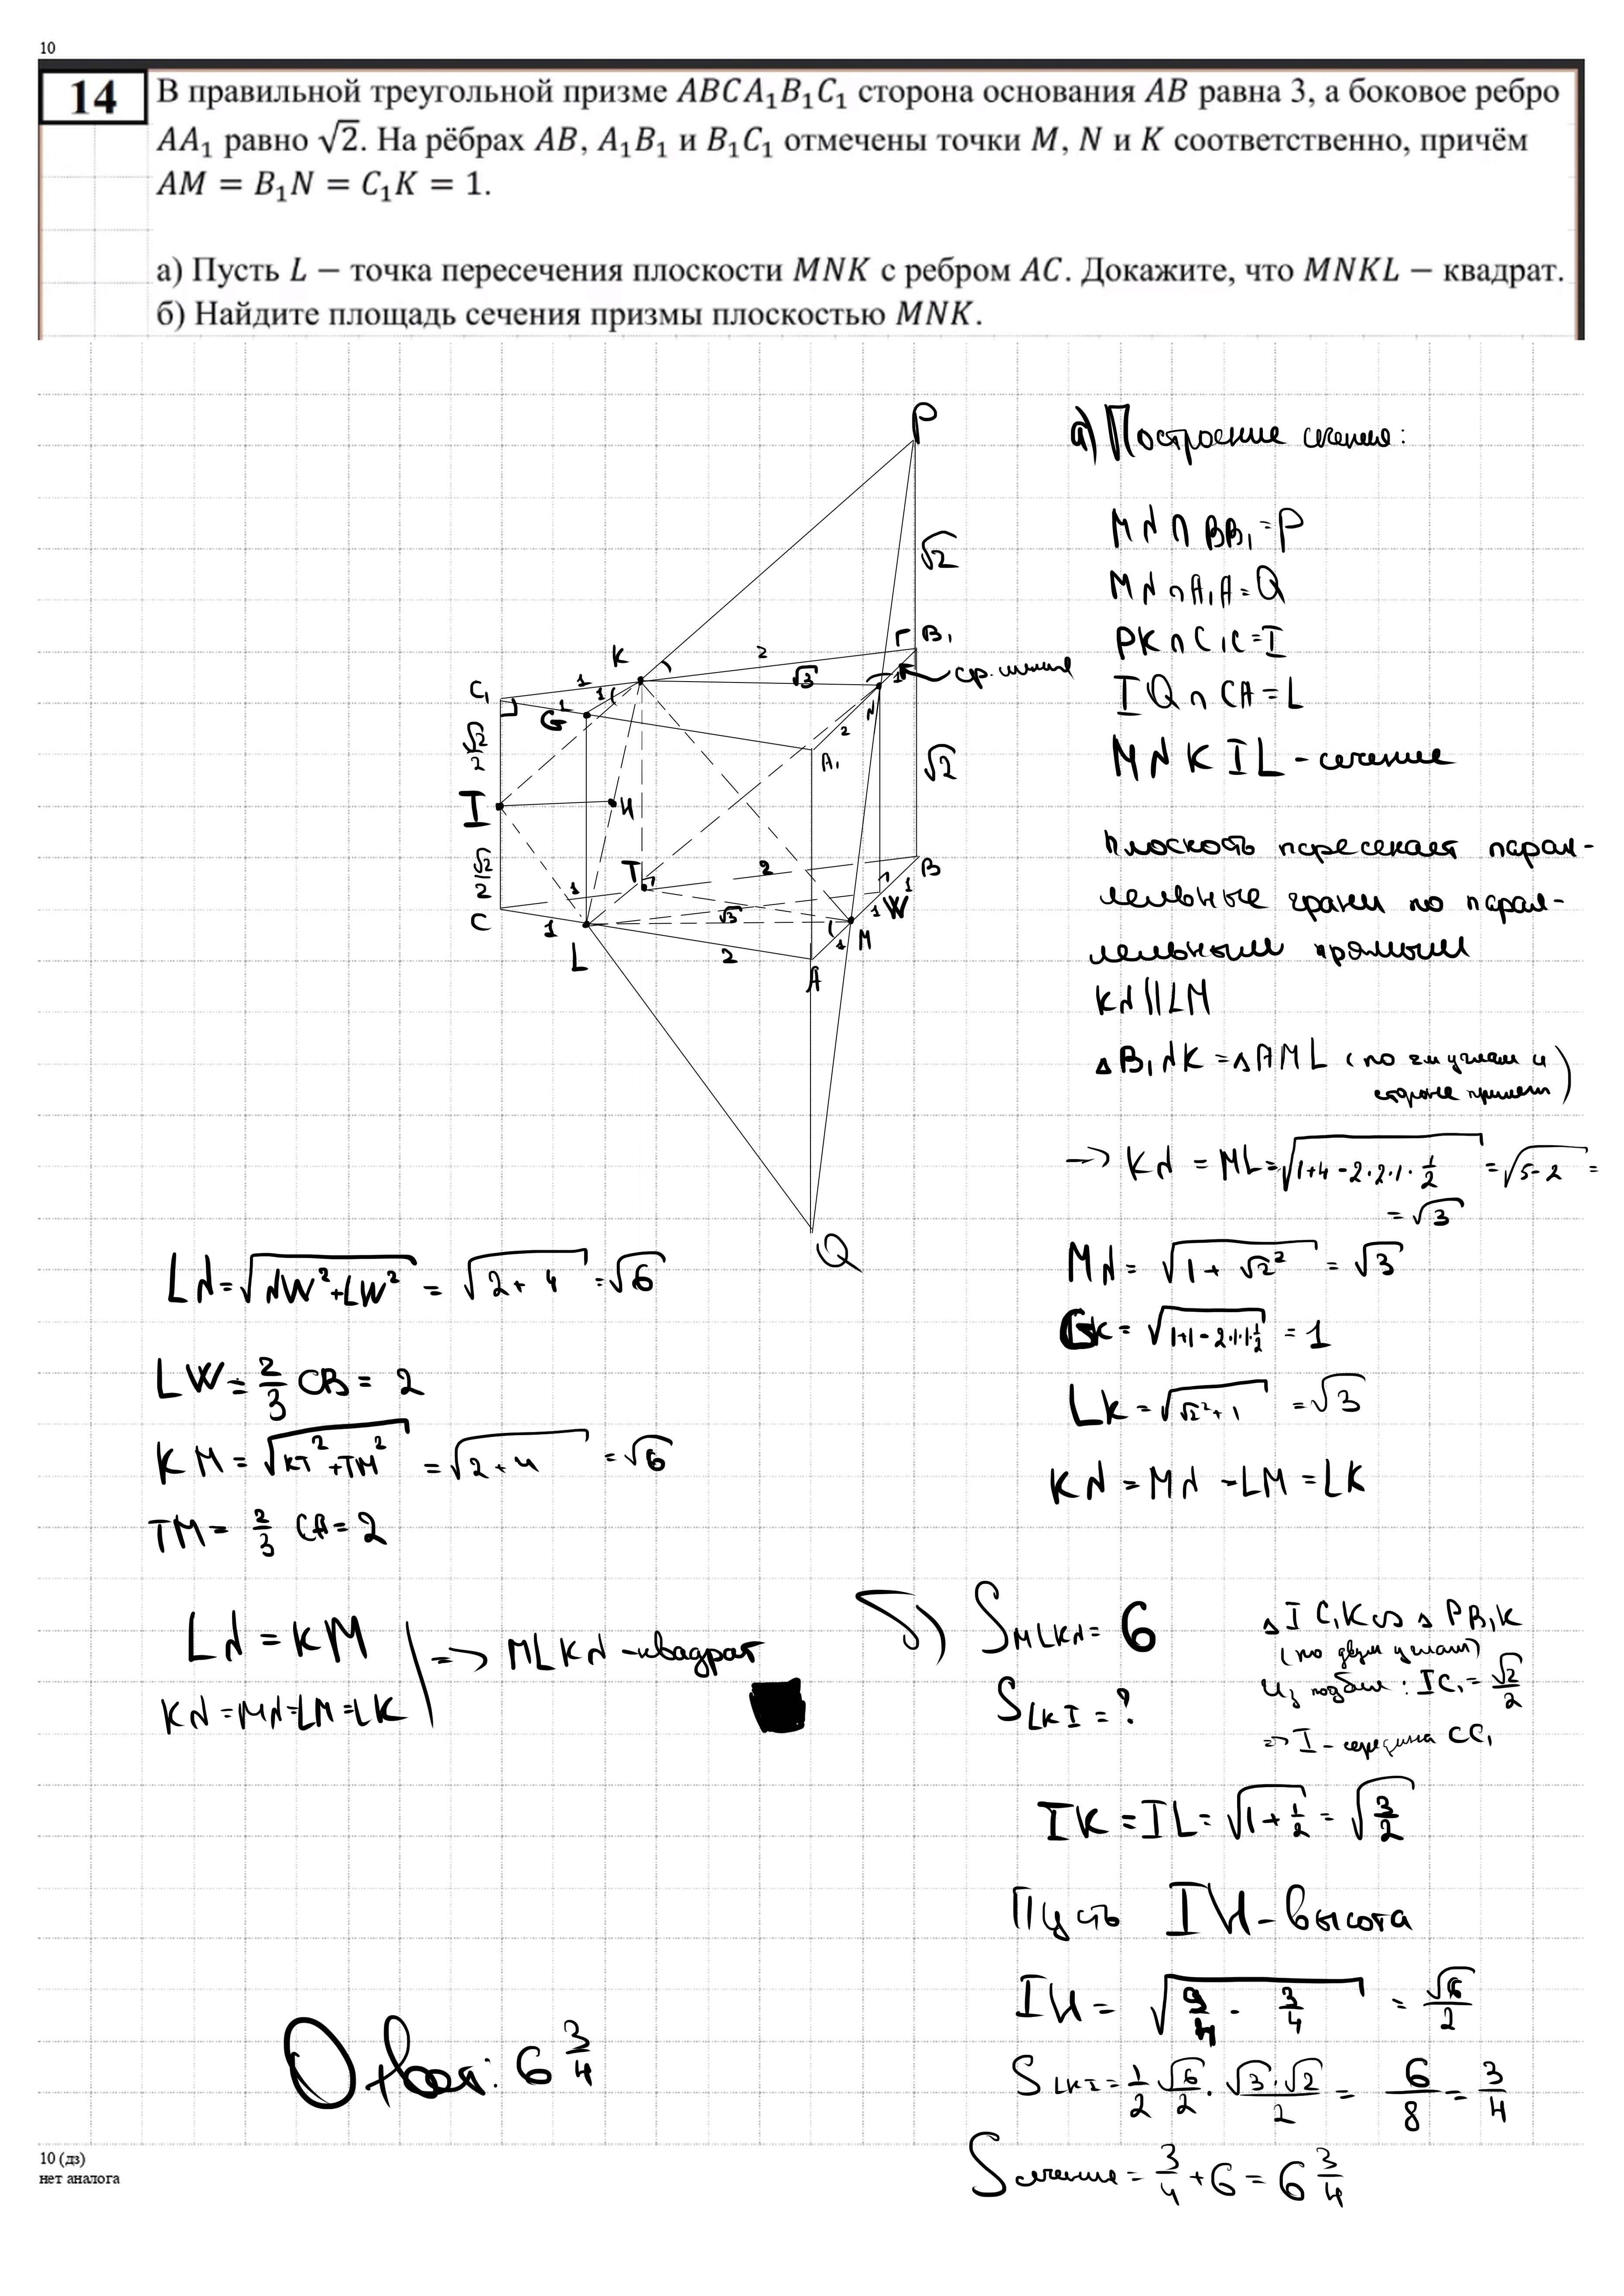 10
14
В правильной треугольной призме ABCA₁B₁C₁ сторона основания AB равна 3, а боковое ребро
AA₁ равно √2. На рёбрах AB, A₁B₁ и B₁C₁ отмечены точки M, N и K соответственно, причём
AM = B₁N = C₁K = 1.
а) Пусть L – точка пересечения плоскости MNK с ребром AC. Докажите, что MNKL – квадрат.
б) Найдите площадь сечения призмы плоскостью MNK.
P
√2
K
2
Г B₁
C₁
1
1
1
√3
1
ср. линия
G
N
2
√2/2
A₁
√2
I
H
√2/2
T
2
B
1
1
W
C
1
√3
1
M
L
2
A
Q
а) Построение сечения:
MN ∩ BB₁ = P
MN ∩ A₁A = Q
PK ∩ C₁C = I
IQ ∩ CA = L
MNKIL - сечение
плоскость пересекает парал-
лельные грани по парал-
лельным прямым
KN || LM
△B₁NK = △AML (по 2м углам и
стороне прилеж)
-> KN = ML = √(1+4-2·2·1·1/2) = √(5-2) =
= √3
MN = √(1+√2²) = √3
GK = √(1+1-2·1·1·1/2) = 1
LK = √(√2²+1) = √3
KN = MN = LM = LK
LN = √(NW²+LW²) = √(2+4) = √6
LW = 2/3 CB = 2
KM = √(KT²+TM²) = √(2+4) = √6
TM = 2/3 CA = 2
LN = KM
KN = MN = LM = LK
=> MLKN - квадрат
б) S MLKN = 6
S LKI = ?
△IC₁K ∾ △PB₁K
(по двум углам)
Из подобия: IC₁ = √2/2
=> I - середина CC₁
IK = IL = √(1+1/2) = √(3/2)
Пусть IH - высота
IH = √( - 3/4) = √6/2
S LKI = 1/2 √6/2 · √3·√2/2 = 6/8 = 3/4
S сечения = 3/4 + 6 = 6 3/4
Ответ: 6 3/4
10 (дз)
нет аналога